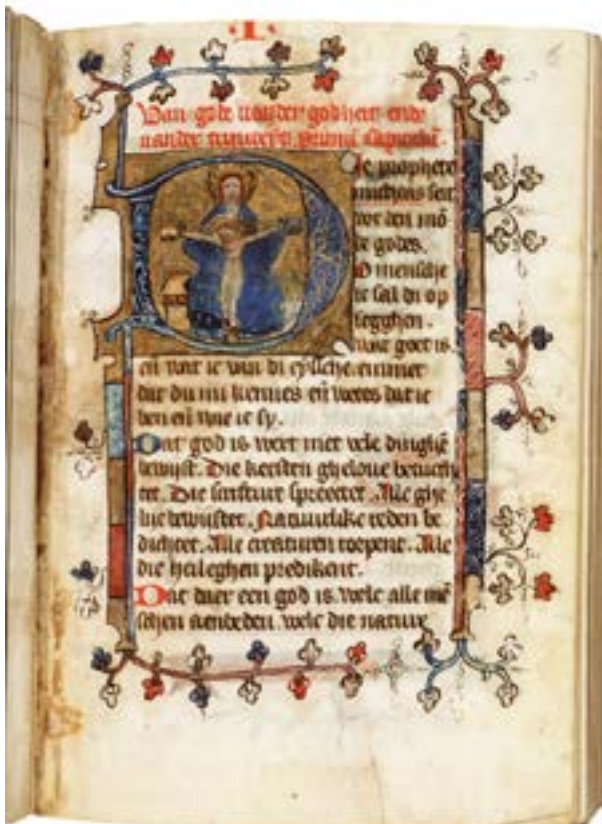 .I.
Van gode van der godheit ende
van der
ie prophete
micheas seit
voe den mō
de godes.
O mensche
ic sal di op
legghen.
wat goet is.
eñ wat ic van di eyssche. emmer
dat du mi kennes eñ wetes dat ic
ben eñ wie ic sy.
Dat god is wert met vele dinghē
bewijst. Die kersten gheloue betuch
tet. Die scrifture spreectet. Alle ghe
bewijstet. Natuurlike reden be
dichtet. Alle creaturen roepent. Alle
die heileghen predikent.
Dat daer een god is. welc alle mē
schen aenbeden. welc die nature